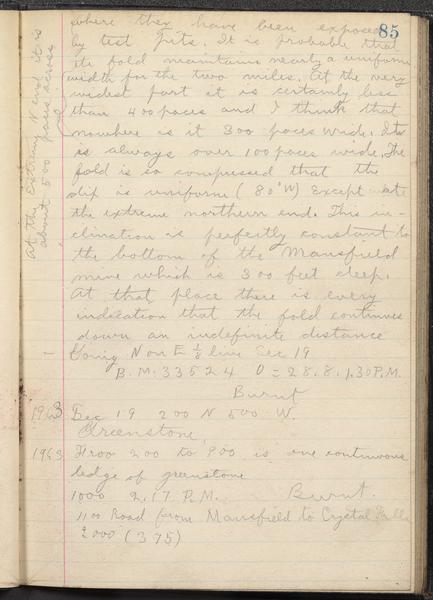 85
where they have been exposed
by test pits. It is probable that
its fold maintains nearly a uniform
width for the two miles. At the very
widest part it is certainly less
than 400 paces and I think that
nowhere is it 300 paces wide. It
is always over 100 paces wide. The
fold is so compressed that the
dip is uniform (80°W) Except at
the extreme northern end. This in-
clination is perfectly constant to
the bottom of the Mansfield
mine which is 300 feet deep.
At that place there is every
indication that the fold continues
down an indefinite distance
At the Extreme N end it is
about 500 paces across
Going N on E 1/8 line Sec 19
B.M. 33524 O = 28.8. 1.30 P.M.
Burnt
1963 Sec 19 200 N 500 W.
Greenstone,
1963 From 200 to 900 is one continuous
ledge of greenstone
1000 2.17 P.M. Burnt.
1100 Road from Mansfield to Crystal Falls
2000 (375)